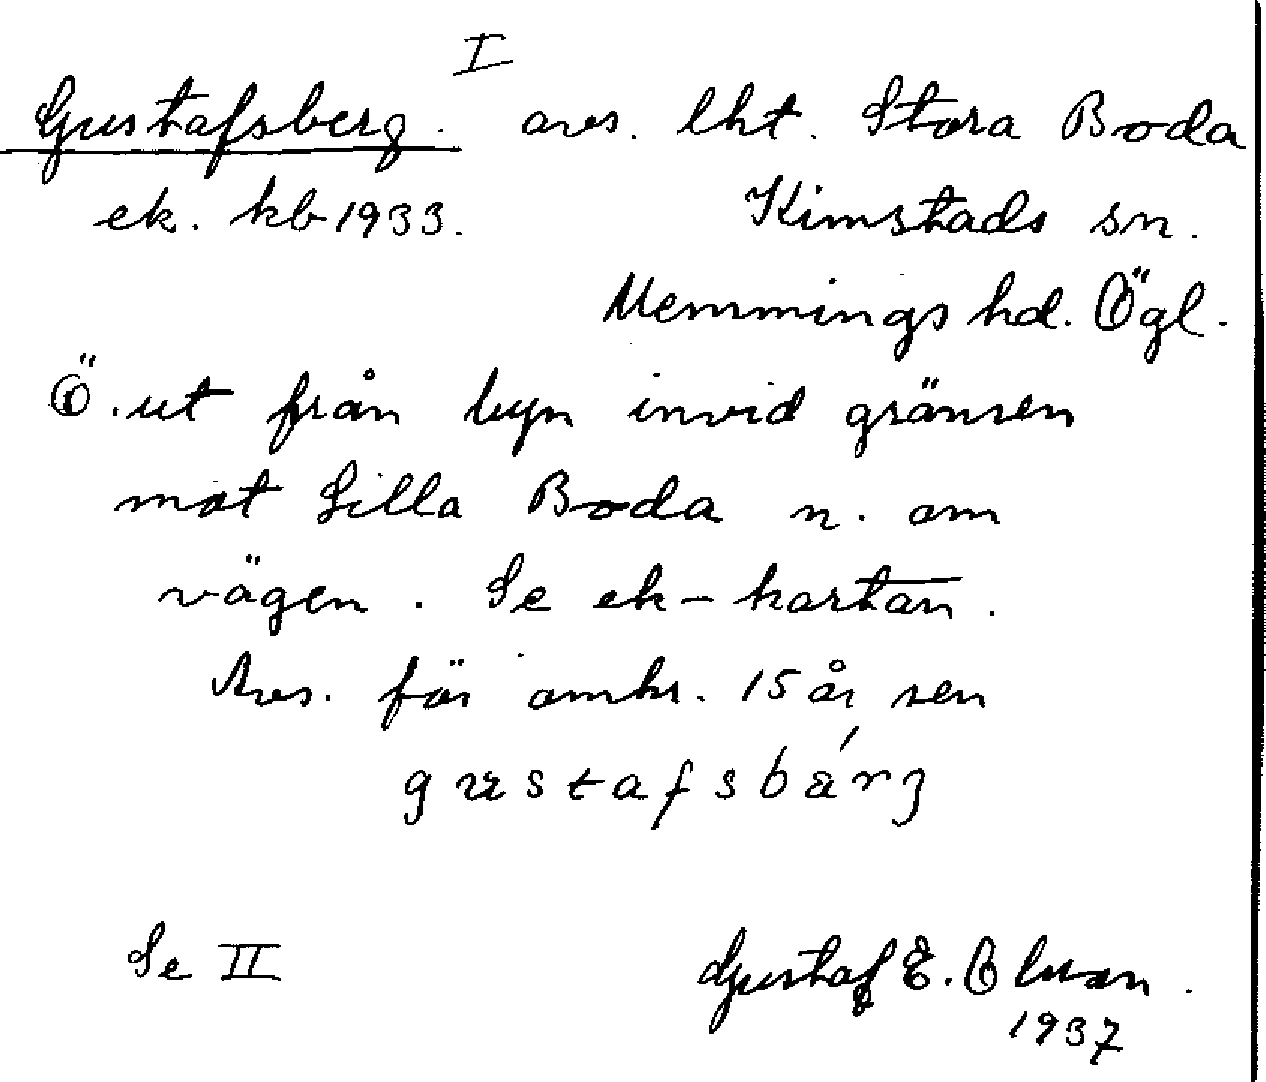 I
Gustafsberg. avs. lht. Stora Boda
ek. kb 1933. Kimstads sn.
Memmings hd. Ögl.
Ö. ut från byn invid gränsen
mot Lilla Boda n. om
vägen. Se ek-kartan.
Avs. för omkr. 15 år sen
gustafsbärʒ
Se II Gustaf E. Olsson.
1937